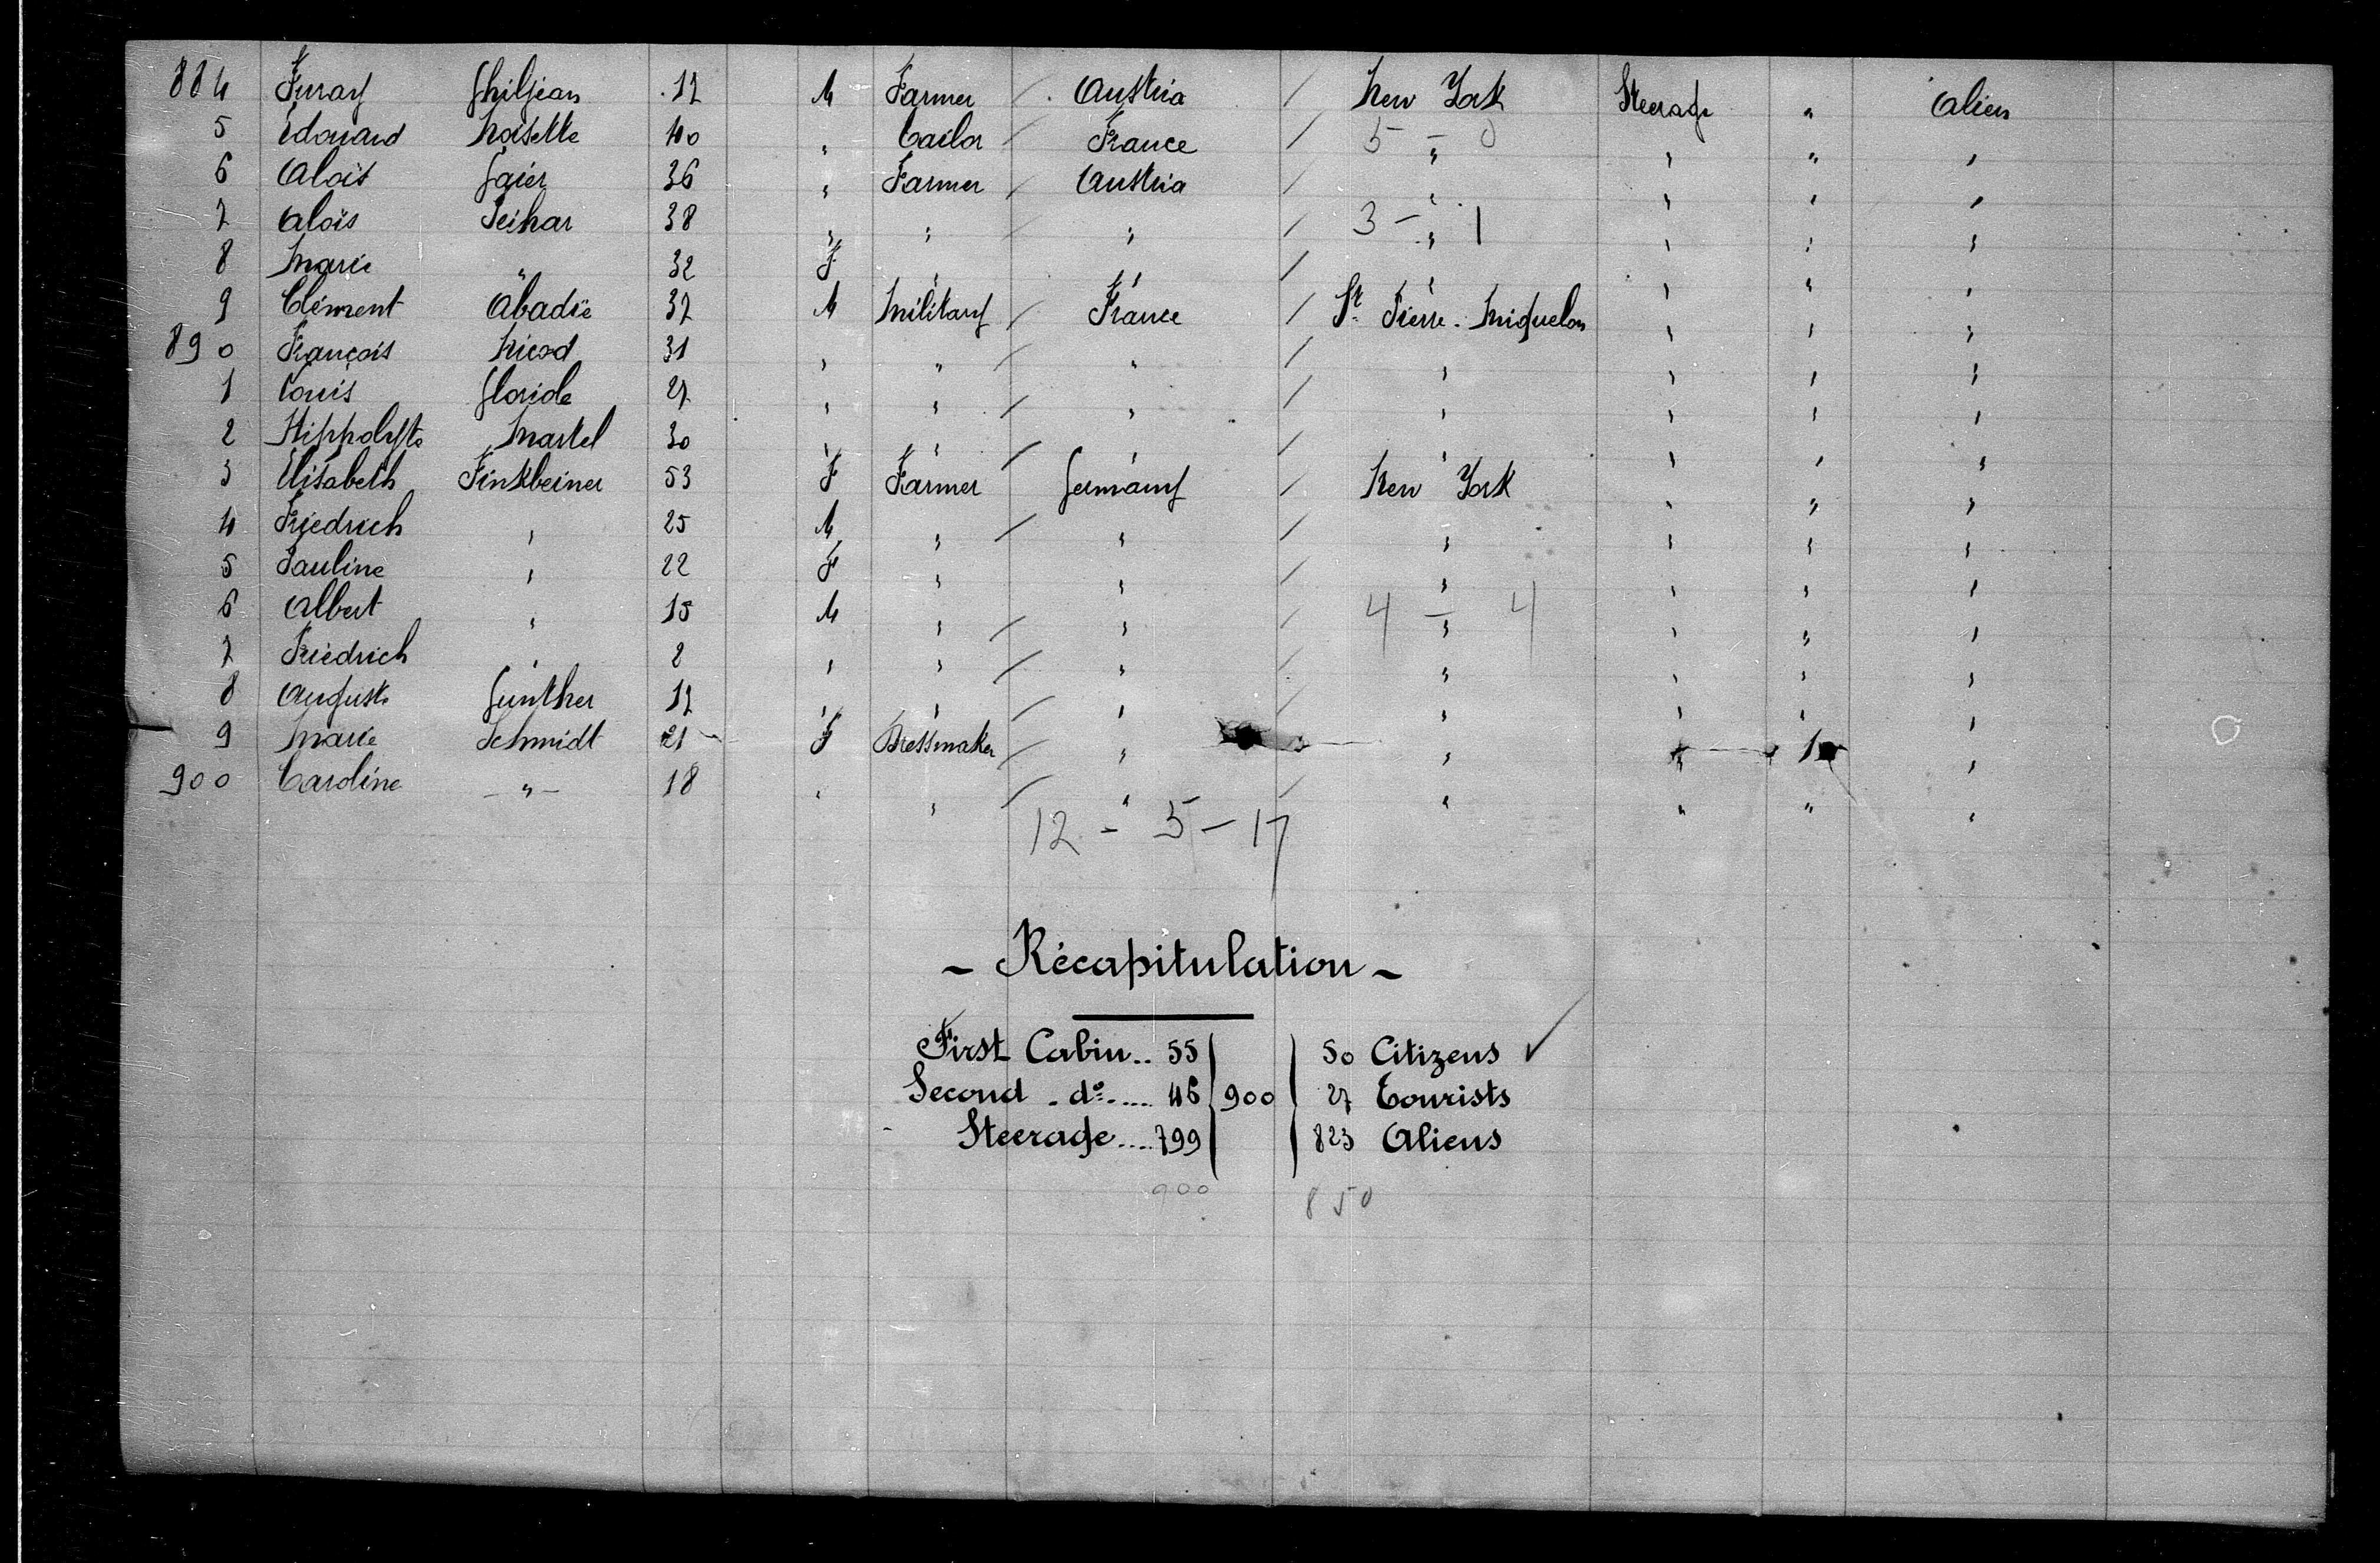 884 Juray Ghiljean 17 M Farmer / Austria / New York Steerage " Alien
5 Edouard Noisette 40 " Tailor / France / " " " "
5 - 0
6 Aloïs Gaier 36 " Farmer / Austria / " " " "
7 Aloïs Peihar 38 " " / " / " " " "
3 - 1
8 Marie " 32 F " " / " " " "
9 Clément Abadïe 37 M Military / France / St Pierre. Miquelon " " "
890 François Nicod 31 " " / " / " " " "
1 Louis Gloride 27 " " / " / " " " "
2 Hippolyte Martel 30 " " / " / " " " "
3 Elisabeth Finkbeiner 53 F Farmer Germany / New York " " "
4 Friedrich " 25 M " / " / " " " "
5 Pauline " 22 F " " / " " " "
6 Albert " 15 M " / " / " " " "
4 - 4
7 Friedrich " 2 " " / " / " " " "
8 Auguste Gunther 17 " " / " / " " " "
9 Marie Schmidt 21 F Dressmaker / " " " "
900 Caroline - " - 18 " " / " / " " " "
12 - 5 - 17
- Récapitulation -
First Cabin.. 55 50 Citizens ✓
Second . do .... 46 900 27 Tourists
Steerage .... 799 823 Aliens
900 850